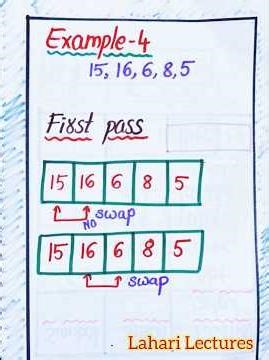 Example-4
15, 16, 6, 8, 5
First pass
15 16 6 8 5
No swap
15 16 6 8 5
swap
Lahari Lectures